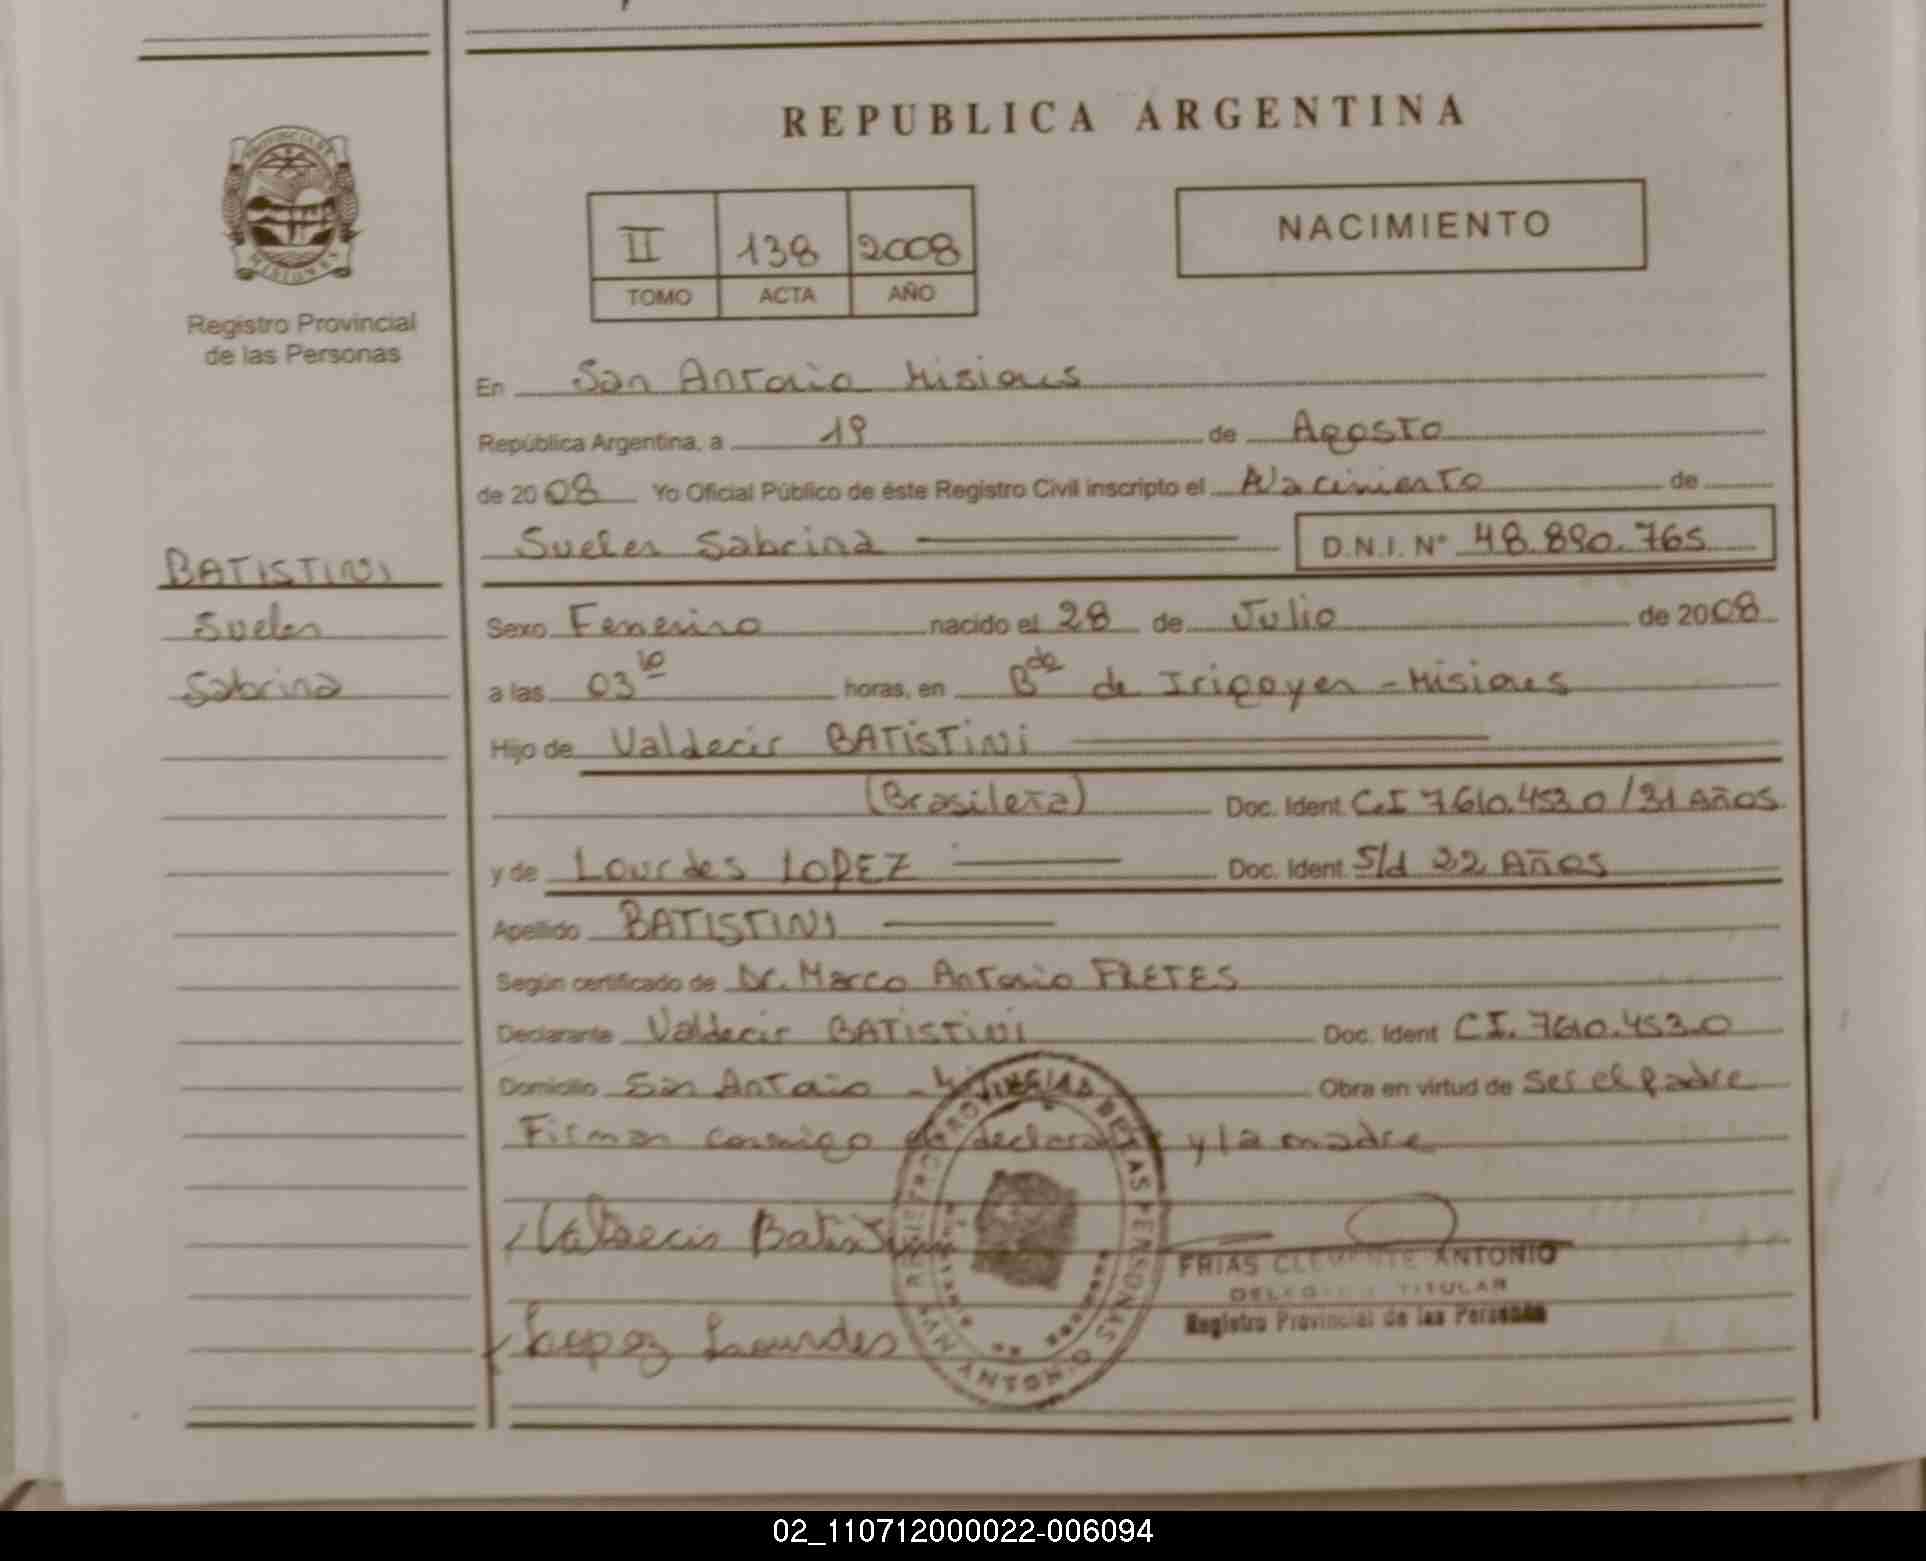 REPUBLICA ARGENTINA
PROVINCIA DE
MISIONES
Registro Provincial
de las Personas
II 138 2008
TOMO ACTA AÑO
NACIMIENTO
En San Antonio Misiones
República Argentina, a 19 de Agosto
de 2008 Yo Oficial Público de éste Registro Civil inscripto el Nacimiento de
Suelen Sabrina D.N.I. Nº 48.890.765
BATISTINI
Suelen
Sabrina
Sexo Femenino nacido el 28 de Julio de 2008
a las 03 10 horas, en Bdo de Irigoyen - Misiones
Hijo de Valdecir BATISTINI
(Brasilera) Doc. Ident. C.I 7.610.453.0 / 31 Años
y de Lourdes LOPEZ Doc. Ident. S/d 22 Años
Apellido BATISTINI
Según certificado de Dr. Marco Antonio FRETES
Declarante Valdecir BATISTINI Doc. Ident CI. 7.610.453.0
Domicilio San Antonio - Obra en virtud de Ser el padre
Firman conmigo declarante y la madre
Valdecir Batistini
Lopez Lourdes
REGISTRO PROVINCIAL DE LAS PERSONAS
FRIAS CLEMENTE ANTONIO
DELEGADO TITULAR
Registro Provincial de las Personas
02_110712000022-006094